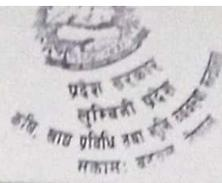 प्रदेश सरकार
लुम्बिनी प्रदेश
कृषि, खाद्य प्रविधि तथा भूमि व्यवस्था